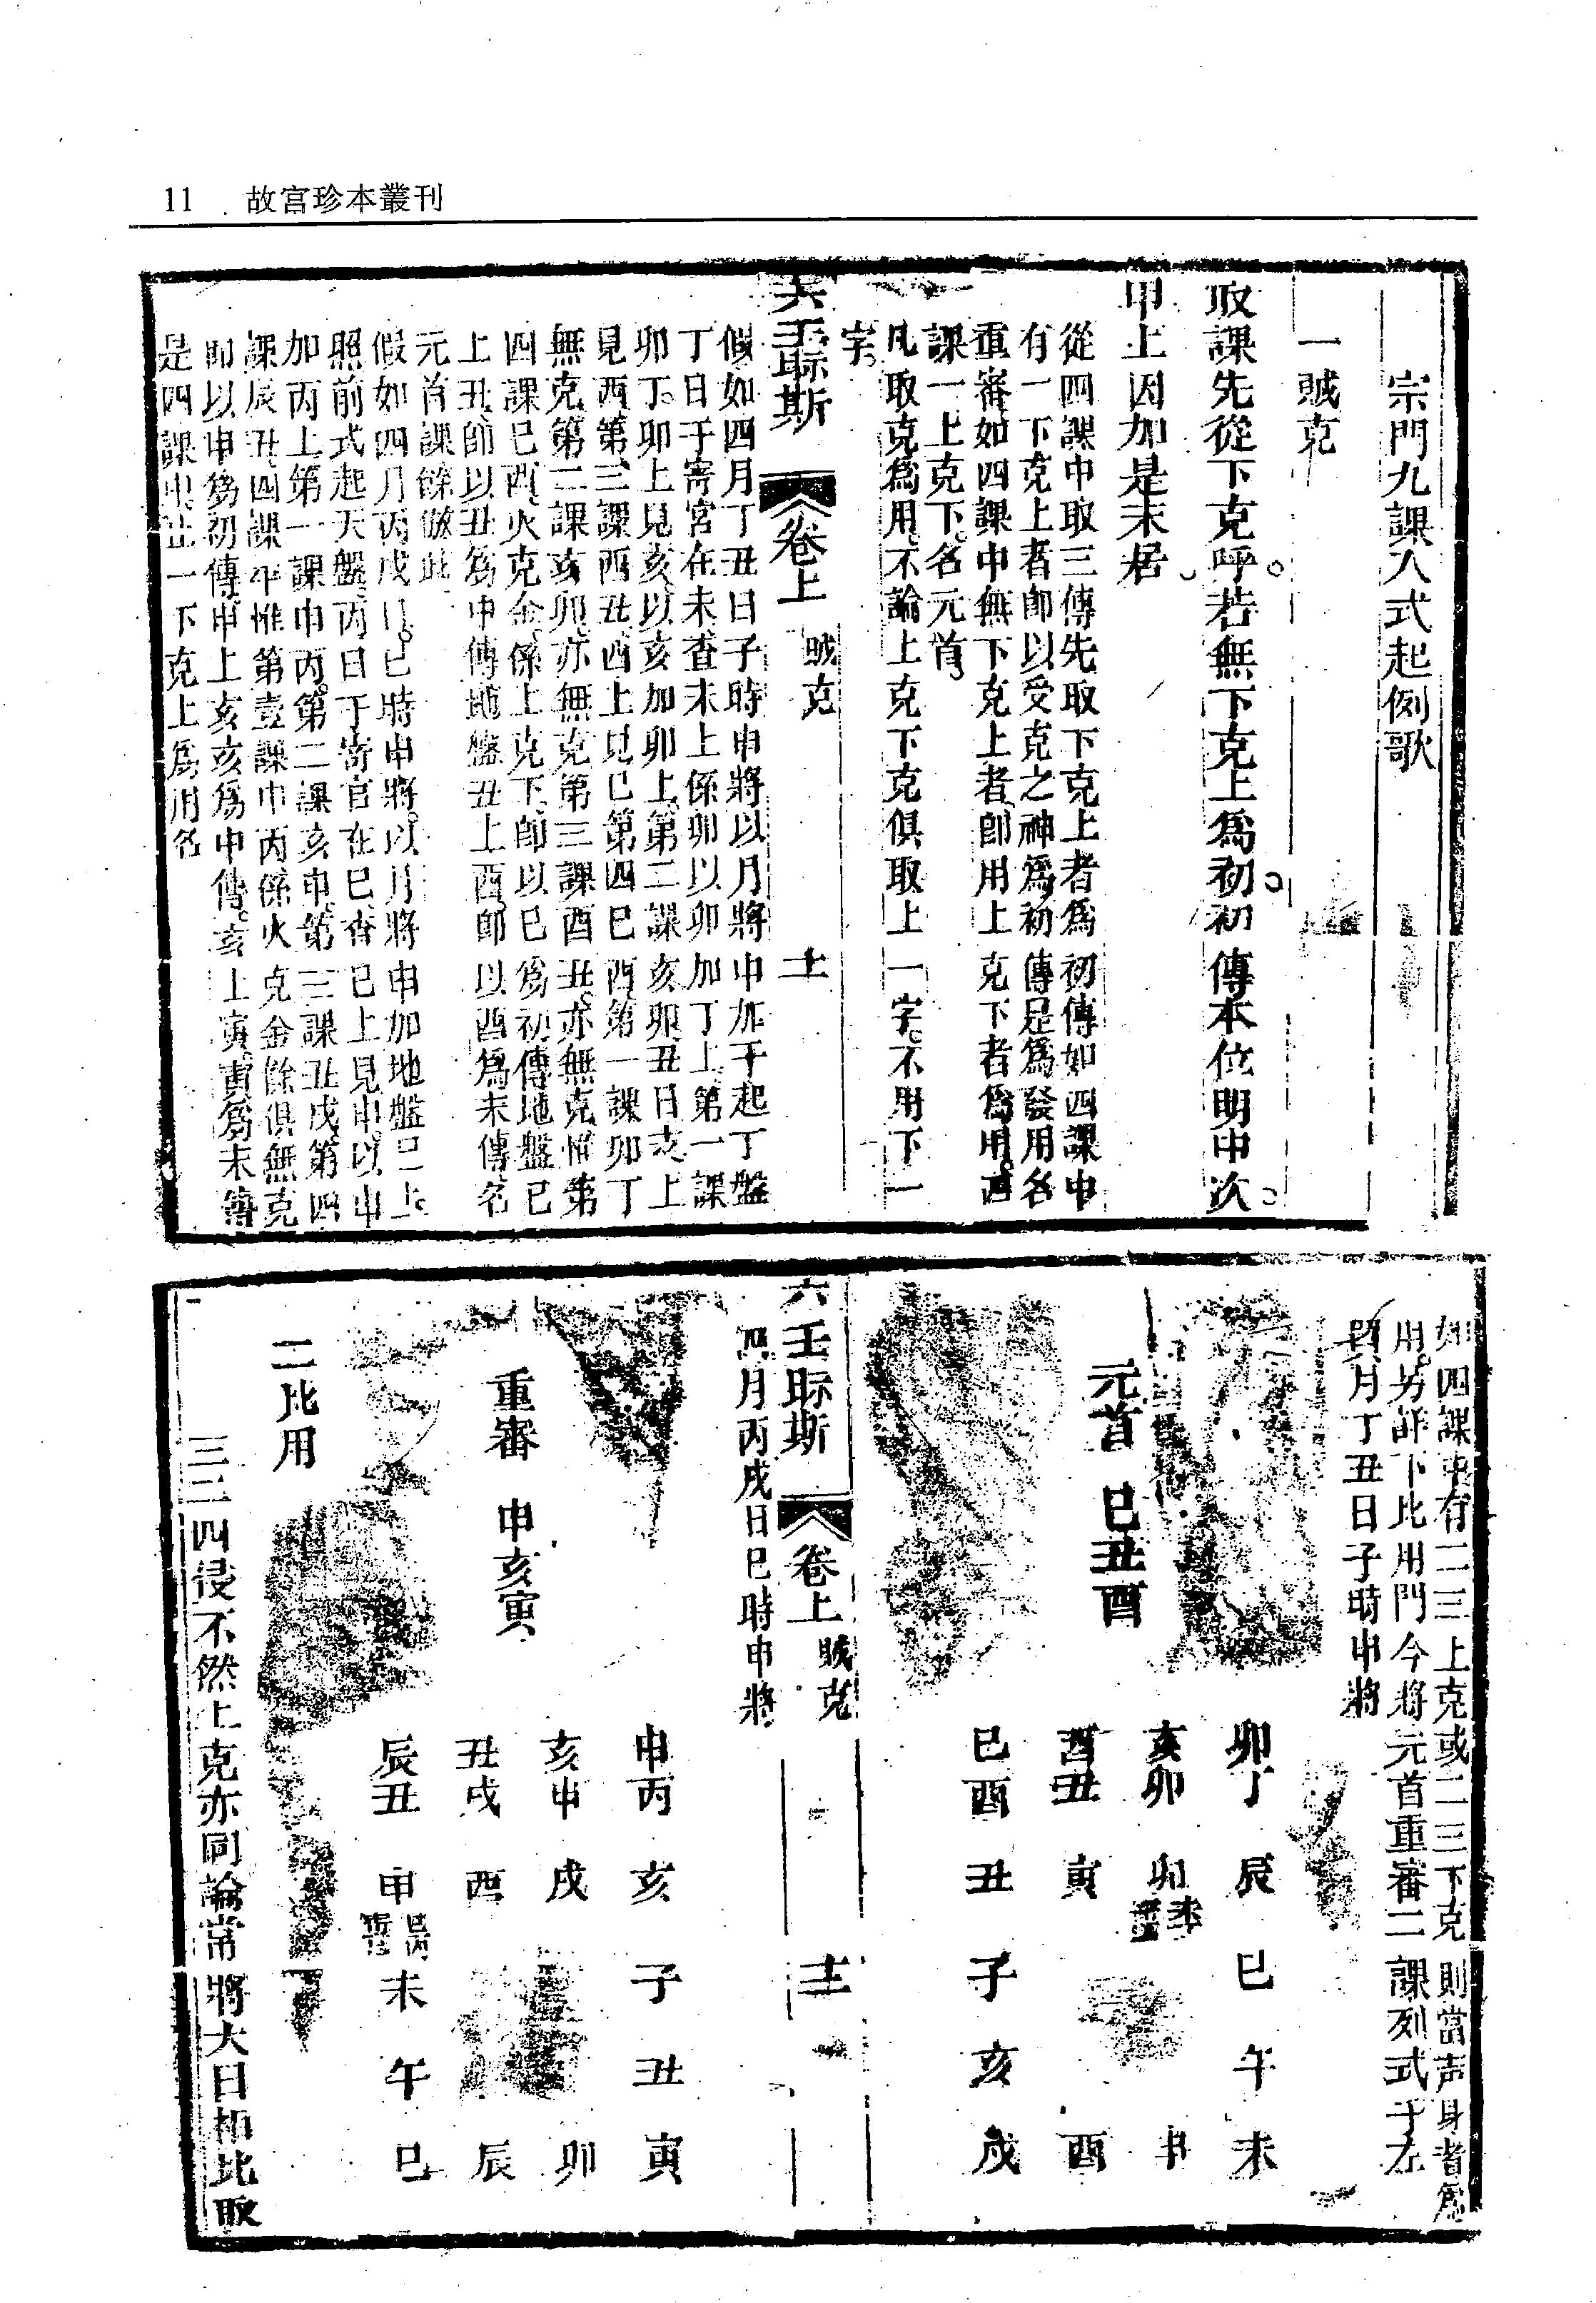 11 故宮珍本叢刊
宗門九課入式起例歌
一賊克
取課先從下克呼若無下克上為初初傳本位明中次
中上因加是末居
從四課中取三傳先取下克上者為初傳如四課中
有一下克上者即以受克之神為初傳是為發用名
重審如四課中無下克上者即用上克下者為用四
課一上克下名元首
凡取克為用不論上克下克俱取上一字不用下一
字
六壬眎斯 卷上 賊克 十一
假如四月丁丑日子時申將以月將申加子起丁盤
丁日干寄宮在未查未上係卯以卯加丁上第一課
卯丁卯上見亥以亥加卯上第二課亥卯丑日支上
見酉第三課酉丑酉上見巳第四巳酉第一課卯丁
無克第二課亥卯亦無克第三課酉丑亦無克惟第
四課巳酉火克金係上克下即以巳為初傳地盤巳
上丑即以丑為中傳地盤丑上酉即以酉為末傳名
元首課餘倣此
假如四月丙戌日巳時申將以月將申加地盤巳上
照前式起天盤丙日干寄宮在巳查巳上見申以申
加丙上第一課申丙第二課亥申第三課丑戌第四
課辰丑四課中惟第壹課申丙係火克金餘俱無克
即以申為初傳申上亥亥為中傳亥上寅寅為末傳
是四課中止一下克上為用名
如四課中有二三上克或二三下克則當声身者為
用另詳下比用門今將元首重審二課列式于左
四月丁丑日子時申將
卯丁 辰 巳 午 未
亥卯 卯 申
元首 巳丑酉
酉丑 寅 酉
巳酉 丑 子 亥 戌
六壬眎斯 卷上 賊克 十二
四月丙戌日巳時申將
申丙 亥 子 丑 寅
亥申 戌 卯
重審 申亥寅
丑戌 酉 辰
辰丑 申 未 午 巳
二比用
三二四侵不然上克亦同論常將大日相比取